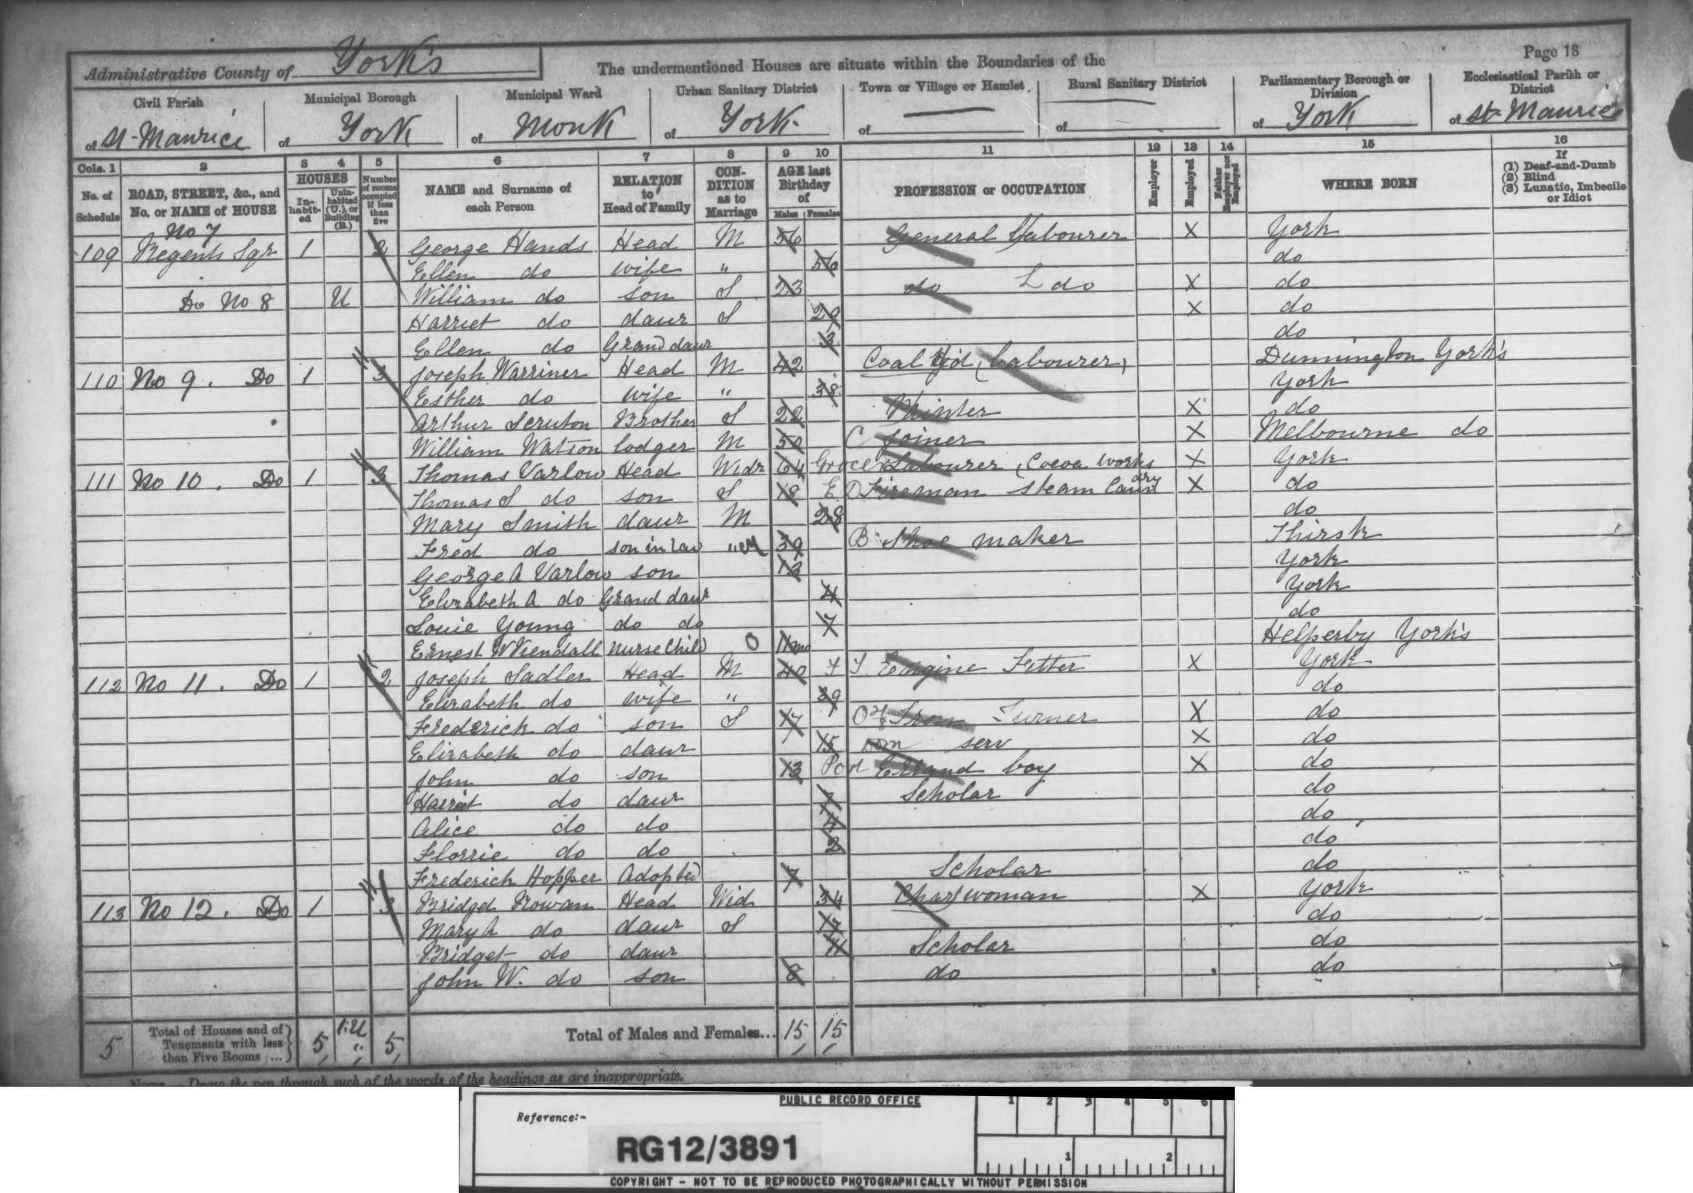 Page 18
Administrative County of York's
The undermentioned Houses are situate within the Boundaries of the
Civil Parish of St Maurice
Municipal Borough of York
Municipal Ward of Monk
Urban Sanitary District of York
Town or Village or Hamlet of
Rural Sanitary District of
Parliamentary Borough or Division of York
Ecclesiastical Parish or District of St Maurice
Cols. 1 2 3 4 5 6 7 8 9 10 11 12 13 14 15 16
No. of Schedule
ROAD, STREET, &c., and No. or NAME of HOUSE
HOUSES
Inhabited
Uninhabited (U.), or Building (B.)
Number of rooms occupied if less than five
NAME and Surname of each Person
RELATION to Head of Family
CONDITION as to Marriage
AGE last Birthday of
Males Females
PROFESSION or OCCUPATION
Employer
Employed
Neither Employer nor Employed
WHERE BORN
If (1) Deaf-and-Dumb (2) Blind (3) Lunatic, Imbecile or Idiot
109 No 7 Regents Sqr 1 2 George Hands Head M 56 General Labourer X York
Ellen do wife " 56 do
Do No 8 U William do son S 23 do L do X do
Harriet do daur S 29 X do
Ellen do Grand daur 3 do
110 No 9. Do 1 3 Joseph Warriner Head M 42 Coal (Labourer) Dunnington York's
Esther do wife " 38 York
Arthur Scruton Brother S 22 Printer X do
William Watson lodger M 50 C Joiner X Melbourne do
111 No 10. Do 1 3 Thomas Varlow Head Widr 64 Grocer Labourer, Cocoa Works X York
Thomas S do son S 18 Fireman Steam Laundry X do
Mary Smith daur M 28 do
Fred do son in law " M 39 B Shoe maker Thirsk
George A Varlow son 13 York
Elizabeth A do Grand daur 4 York
Louie Young do do 7 do
Ernest W Nurse Child O 11 mo Helperby York's
112 No 11. Do 1 2 Joseph Sadler Head M 40 Engine Fitter X York
Elizabeth do wife " 39 do
Frederick do son S 17 Iron Turner X do
Elizabeth do daur 15 serv X do
John do son 13 Errand boy X do
Harriet do daur 7 Scholar do
Alice do do 4 do
Florrie do do 2 do
Frederick Hopper Adopted 7 Scholar do
113 No 12. Do 1 3 Bridget Rowan Head Wid 34 Charwoman X York
Mary A do daur S 17 do
Bridget do daur 11 Scholar do
John W. do son 8 do do
5 Total of Houses and of Tenements with less than Five Rooms ... 5 1.U 5 Total of Males and Females... 15 15
Note.—Draw the pen through such of the words of the headings as are inappropriate.
PUBLIC RECORD OFFICE
1 2 3 4 5 6
Reference:-
RG12/3891
1 2
COPYRIGHT - NOT TO BE REPRODUCED PHOTOGRAPHICALLY WITHOUT PERMISSION